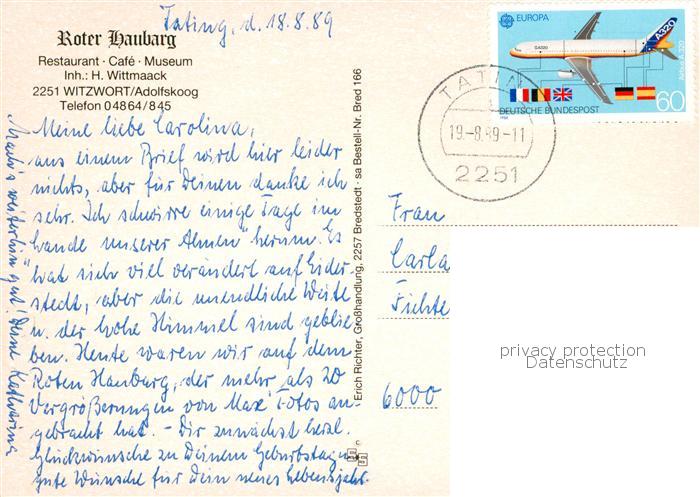 Tating, d. 18.8.89
Roter Haubarg
Restaurant · Café · Museum
Inh.: H. Wittmaack
2251 WITZWORT/Adolfskoog
Telefon 04864/845
Meine liebe Carolina,
aus einem Brief wird hier leider
nichts, aber für Deinen danke ich
sehr. Ich schwirre einige Tage im
"Lande unserer Ahnen" herum. Es
hat sich viel verändert auf Eider-
stedt, aber die unendliche Weite
u. der hohe Himmel sind geblie
ben. Heute waren wir auf dem
Roten Haubarg, der mehr als 20
Vergrößerungen von Max' Fotos an-
gebracht hat. - Dir zunächst herzl.
Glückwünsche zu Deinem Geburtstag u.
gute Wünsche für Dein neues Lebensjahr.
Mach's weiterhin gut! Deine Katharina
Erich Richter, Großhandlung, 2257 Bredstedt · sa Bestell-Nr. Bred 166
EUROPA
A320
Airbus A 320
DEUTSCHE BUNDESPOST
60
TATIN
19.-8.89-11
2251
Frau
Carla
Fichte
6000
privacy protection
Datenschutz